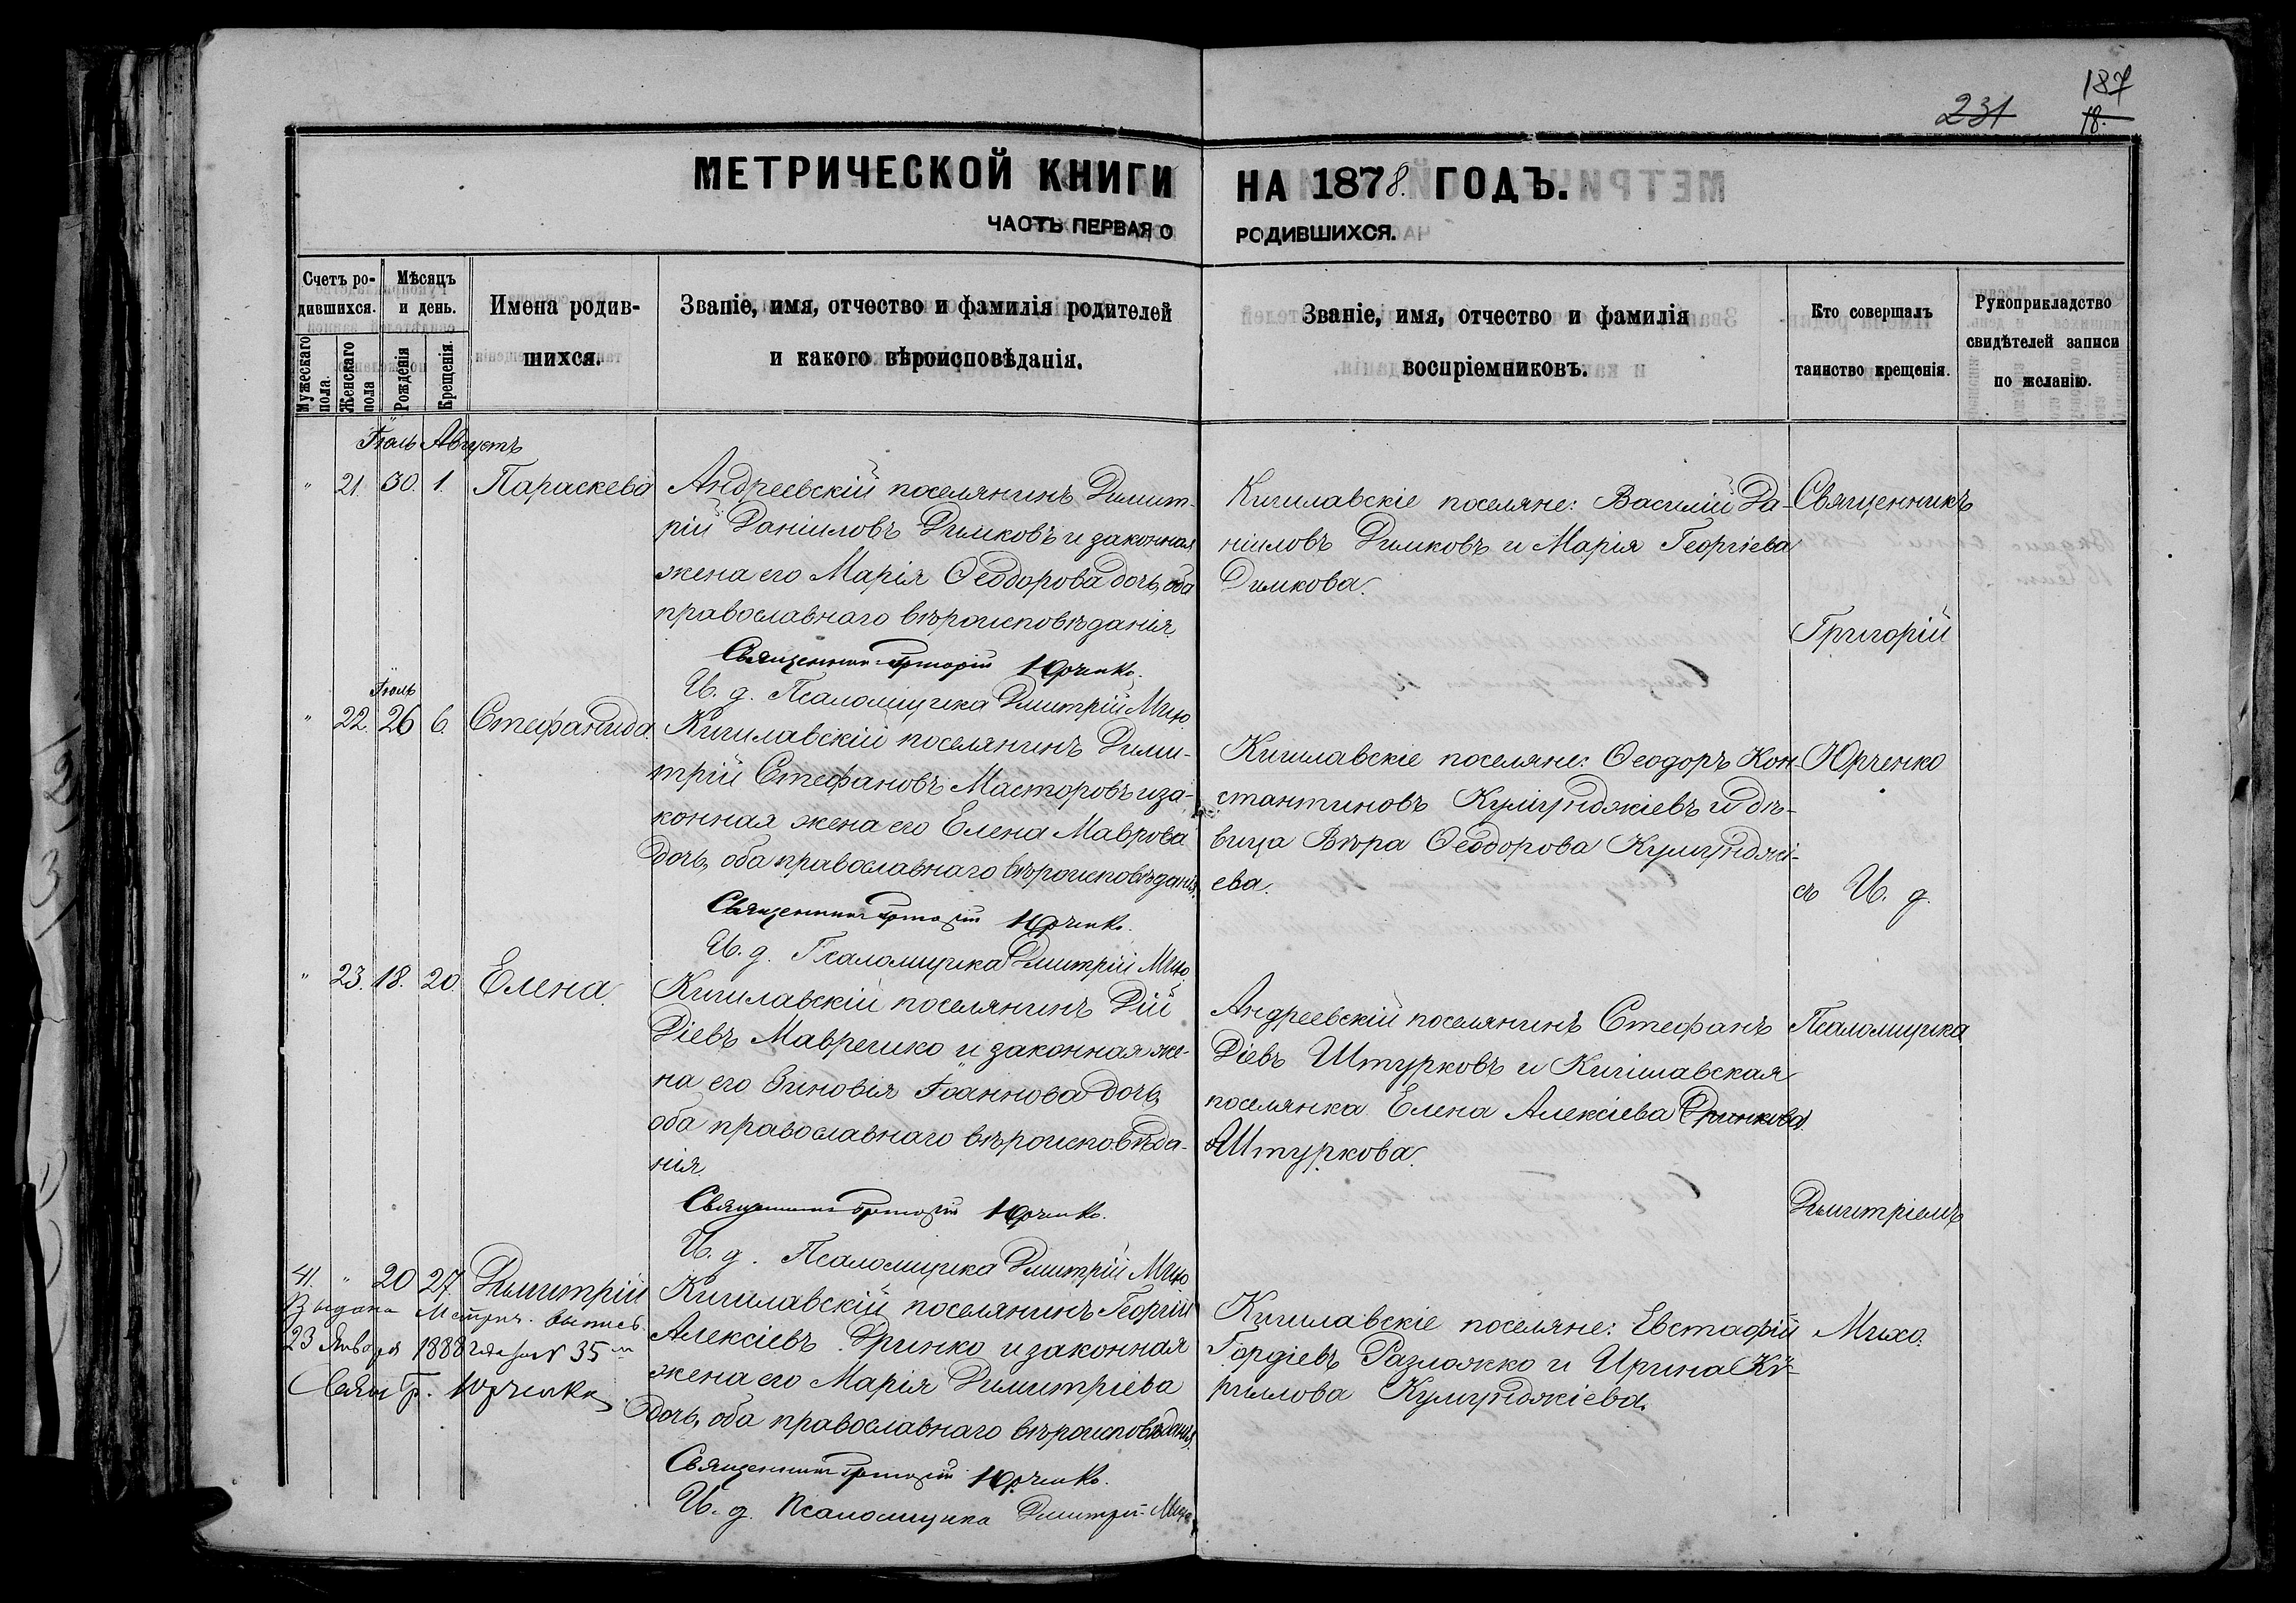 187
231 18.
МЕТРИЧЕСКОЙ КНИГИ НА 1878. ГОДЪ.
ЧАСТЬ ПЕРВАЯ О РОДИВШИХСЯ.
Счетъ родившихся.
Мужескаго пола.
Женскаго пола
Мѣсяцъ и день.
Рожденія
Крещенія.
Имена родив-
шихся.
Званіе, имя, отчество и фамилія родителей
и какого вѣроисповѣданія.
Званіе, имя, отчество и фамилія
воспріемниковъ.
Кто совершалъ
таинство крещенія.
Рукоприкладство
свидѣтелей записи
по желанію.
Іюль Августъ
" 21. 30. 1. Параскева
Андреевскій поселянинъ Димит-
рій Даніиловъ Димковъ и законная
жена его Марія Ѳеодорова дочь, оба
православнаго вѣроисповѣданія.
Священникъ Григорій Юрченко.
И. д. Псаломщика Дмитрій Михо
Кичилавскіе поселяне: Василій Да-
ніиловъ Димковъ и Марія Георгіева
Димкова.
Священникъ
Григорій
Іюль
" 22. 26 6. Стефанида.
Кичилавскій поселянинъ Дими-
трій Стефановъ Масторовъ и за-
конная жена его Елена Маврова
дочь, оба православнаго вѣроисповѣданія.
Священникъ Григорій Юрченко.
И. д. Псаломщика Дмитрій Михо
Кичилавскіе поселяне: Ѳеодоръ Кон-
стантиновъ Куюмджіевъ и дѣ-
вица Вѣра Ѳеодорова Куюмджі-
ева.
Юрченко
съ И. д.
" 23. 18. 20. Елена.
Кичилавскій поселянинъ Дій
Діевъ Маврешко и законная же-
на его Зиновія Іоаннова дочь,
оба православнаго вѣроисповѣда-
нія
Священникъ Григорій Юрченко.
И. д. Псаломщика Дмитрій Михо
Андреевскій поселянинъ Стефанъ
Діевъ Штурковъ и Кичилавская
поселянка Елена Алексіева Дринкова
Штуркова.
Псаломщика
Дмитріемъ
41. " 20 27. Дмитрій
Выдана Метрич. выпись
23 Января 1888 года за № 35
Свящ Гр. Юрченко
Кичилавскій поселянинъ Георгій
Алексіевъ Дринко и законная
жена его Марія Димитріева
дочь, оба православнаго вѣроисповѣданія
Священникъ Григорій Юрченко.
И. д. Псаломщика Дмитрій Михо
Кичилавскіе поселяне: Евстафій
Гордіевъ Разложко и Ирина Ки-
риллова Куюмджіева.
Михо.